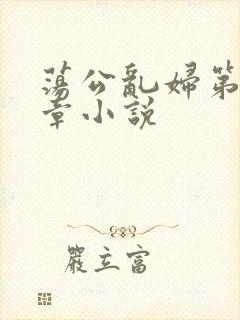 蕩公亂婦第
章小說
嚴立富